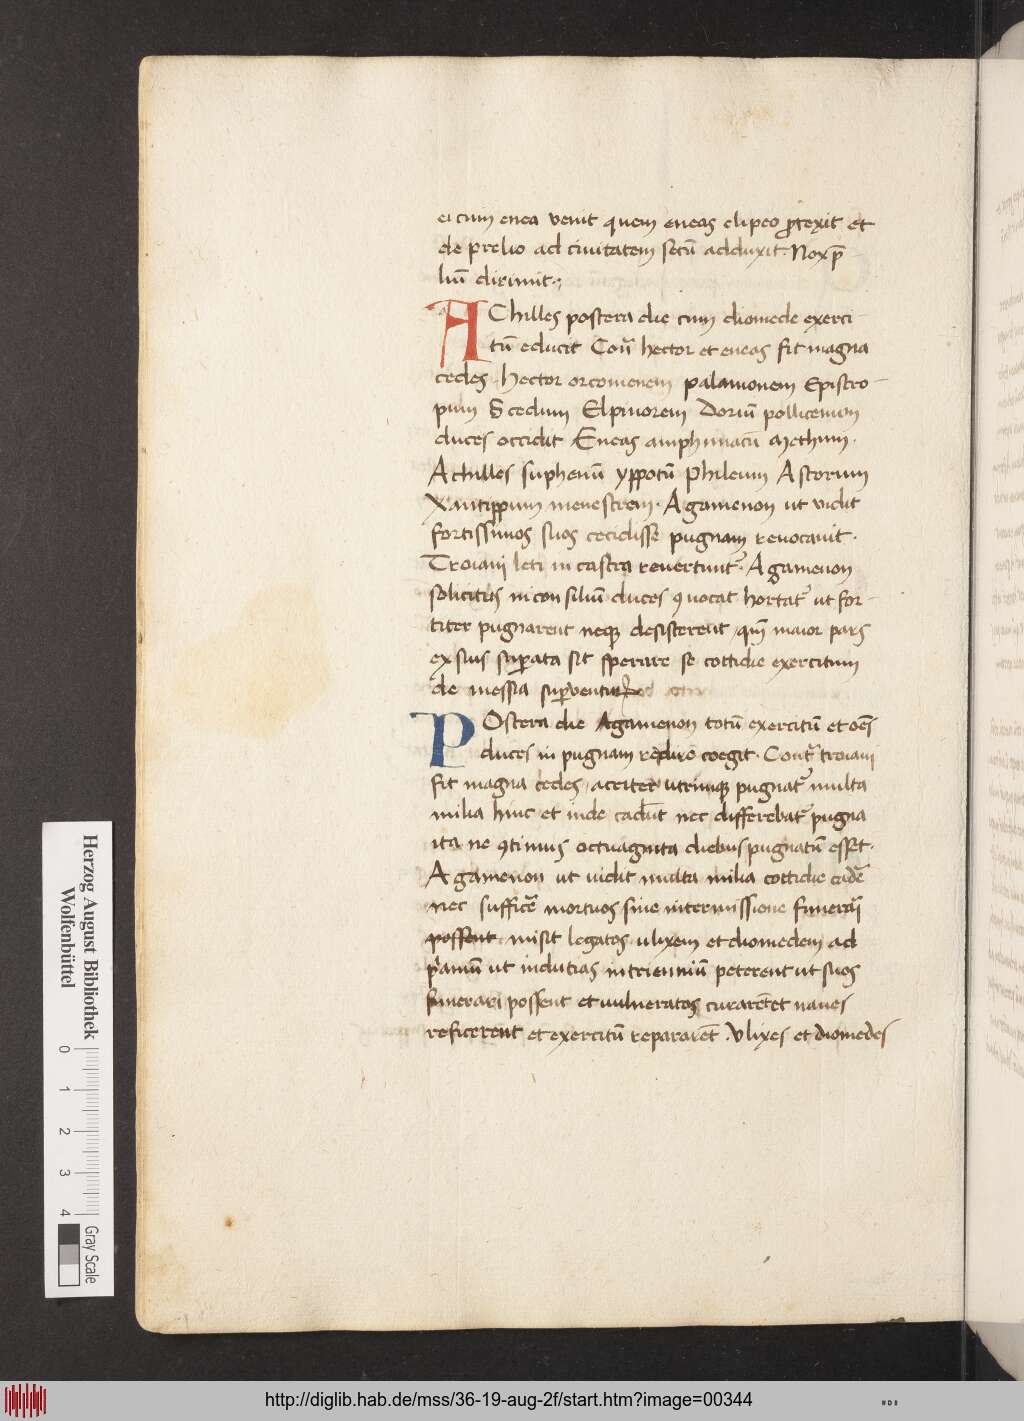 ei cum enea venit quem eneas clipeo ꝓtexit et
de prelio ad ciuitatem secū adduxit · Nox p̄
liū dirimit ·
AChilles postera die cum diomede exerci
tū educit Cont̃ hector et eneas fit magna
cedes · Hector orcomenem palamonem Epistro
pum Scedium Elpinorem Doriū pollicenium
duces occidit Eneas amphimacū Methium ·
Achilles suphenū yppotū Phileum Astorium
Xantippum menestrem · Agamenon ut vidit
fortissimos suos cecidisse pugnam reuocauit ·
Troiani leti in castra reuertunt᷑ · Agamenon
solicitus in consiliū duces ꝯuocat hortat᷑ ut for
titer pugnarent neqꝫ desisterent qm̄ maior pars
ex suis suꝑata sit sperare se cottidie exercitum
de messia suꝑventur
POstera die Agamenon totū exercitū et oēs
duces in pugnam redire coegit · Cont̃ troiani
fit magna cedes acriter utrimqꝫ pugnat᷑ multa
milia hinc et inde cadūt nec differebat᷑ pugna
ita ne ꝯtinuis octuaginta diebus pugnatū esset ·
Agamenon ut uidit multa milia cottidie cadē
nec sufficē mortuos sine intermissione funerari
possent misit legatos ulixem et diomedem ad
p̄amū ut indutias in trienniū peterent ut suos
funerari possent et uulneratos curarēt et naues
reficerent et exercitū repararēt · Vlixes et diomedes
Herzog August Bibliothek
Wolfenbüttel
0 1 2 3 4
Gray Scale
http://diglib.hab.de/mss/36-19-aug-2f/start.htm?image=00344